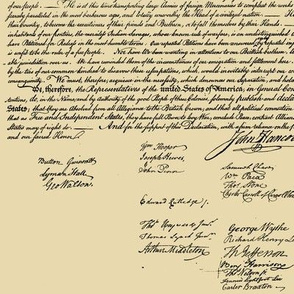 of our people. — He is at this time transporting large Armies of foreign Mercenaries to compleat the works
scarcely paralleled in the most barbarous ages, and totally unworthy the Head of a civilized nation. — He has
to become the executioners of their friends and Brethren, or to fall themselves by their Hands.
inhabitants of our frontiers, the merciless Indian Savages, whose known rule of warfare, is an undistinguished
have Petitioned for Redress in the most humble terms: Our repeated Petitions have been answered only by repeated
is unfit to be the ruler of a free people. — Nor have We been wanting in attentions to our British
jurisdiction over us. We have reminded them of the circumstances of our emigration and settlement here.
by the ties of our common kindred to disavow these usurpations, which, would inevitably interrupt our
We must, therefore, acquiesce in the necessity, which denounces our Separation, and hold
We, therefore, the Representatives of the united States of America, in General
do, in the Name, and by Authority of the good People of these Colonies, solemnly publish and declare
States; that they are Absolved from all Allegiance to the British Crown, and that all political connection
that as Free and Independent States, they have full Power to levy War, conclude Peace, contract
States may of right do. — And for the support of this Declaration, with a firm reliance on the
and our sacred Honor.
John Hancock
Button Gwinnett
Lyman Hall
Geo Walton.
Wm Hooper
Joseph Hewes,
John Penn
Edward Rutledge /.
Thos Heyward Junr.
Thomas Lynch Junr.
Arthur Middleton
Samuel Chase
Wm Paca
Thos Stone
Charles Carroll of
George Wythe
Richard Henry Lee
Th Jefferson
Benj Harrison
Thos Nelson jr.
Francis Lightfoot Lee
Carter Braxton